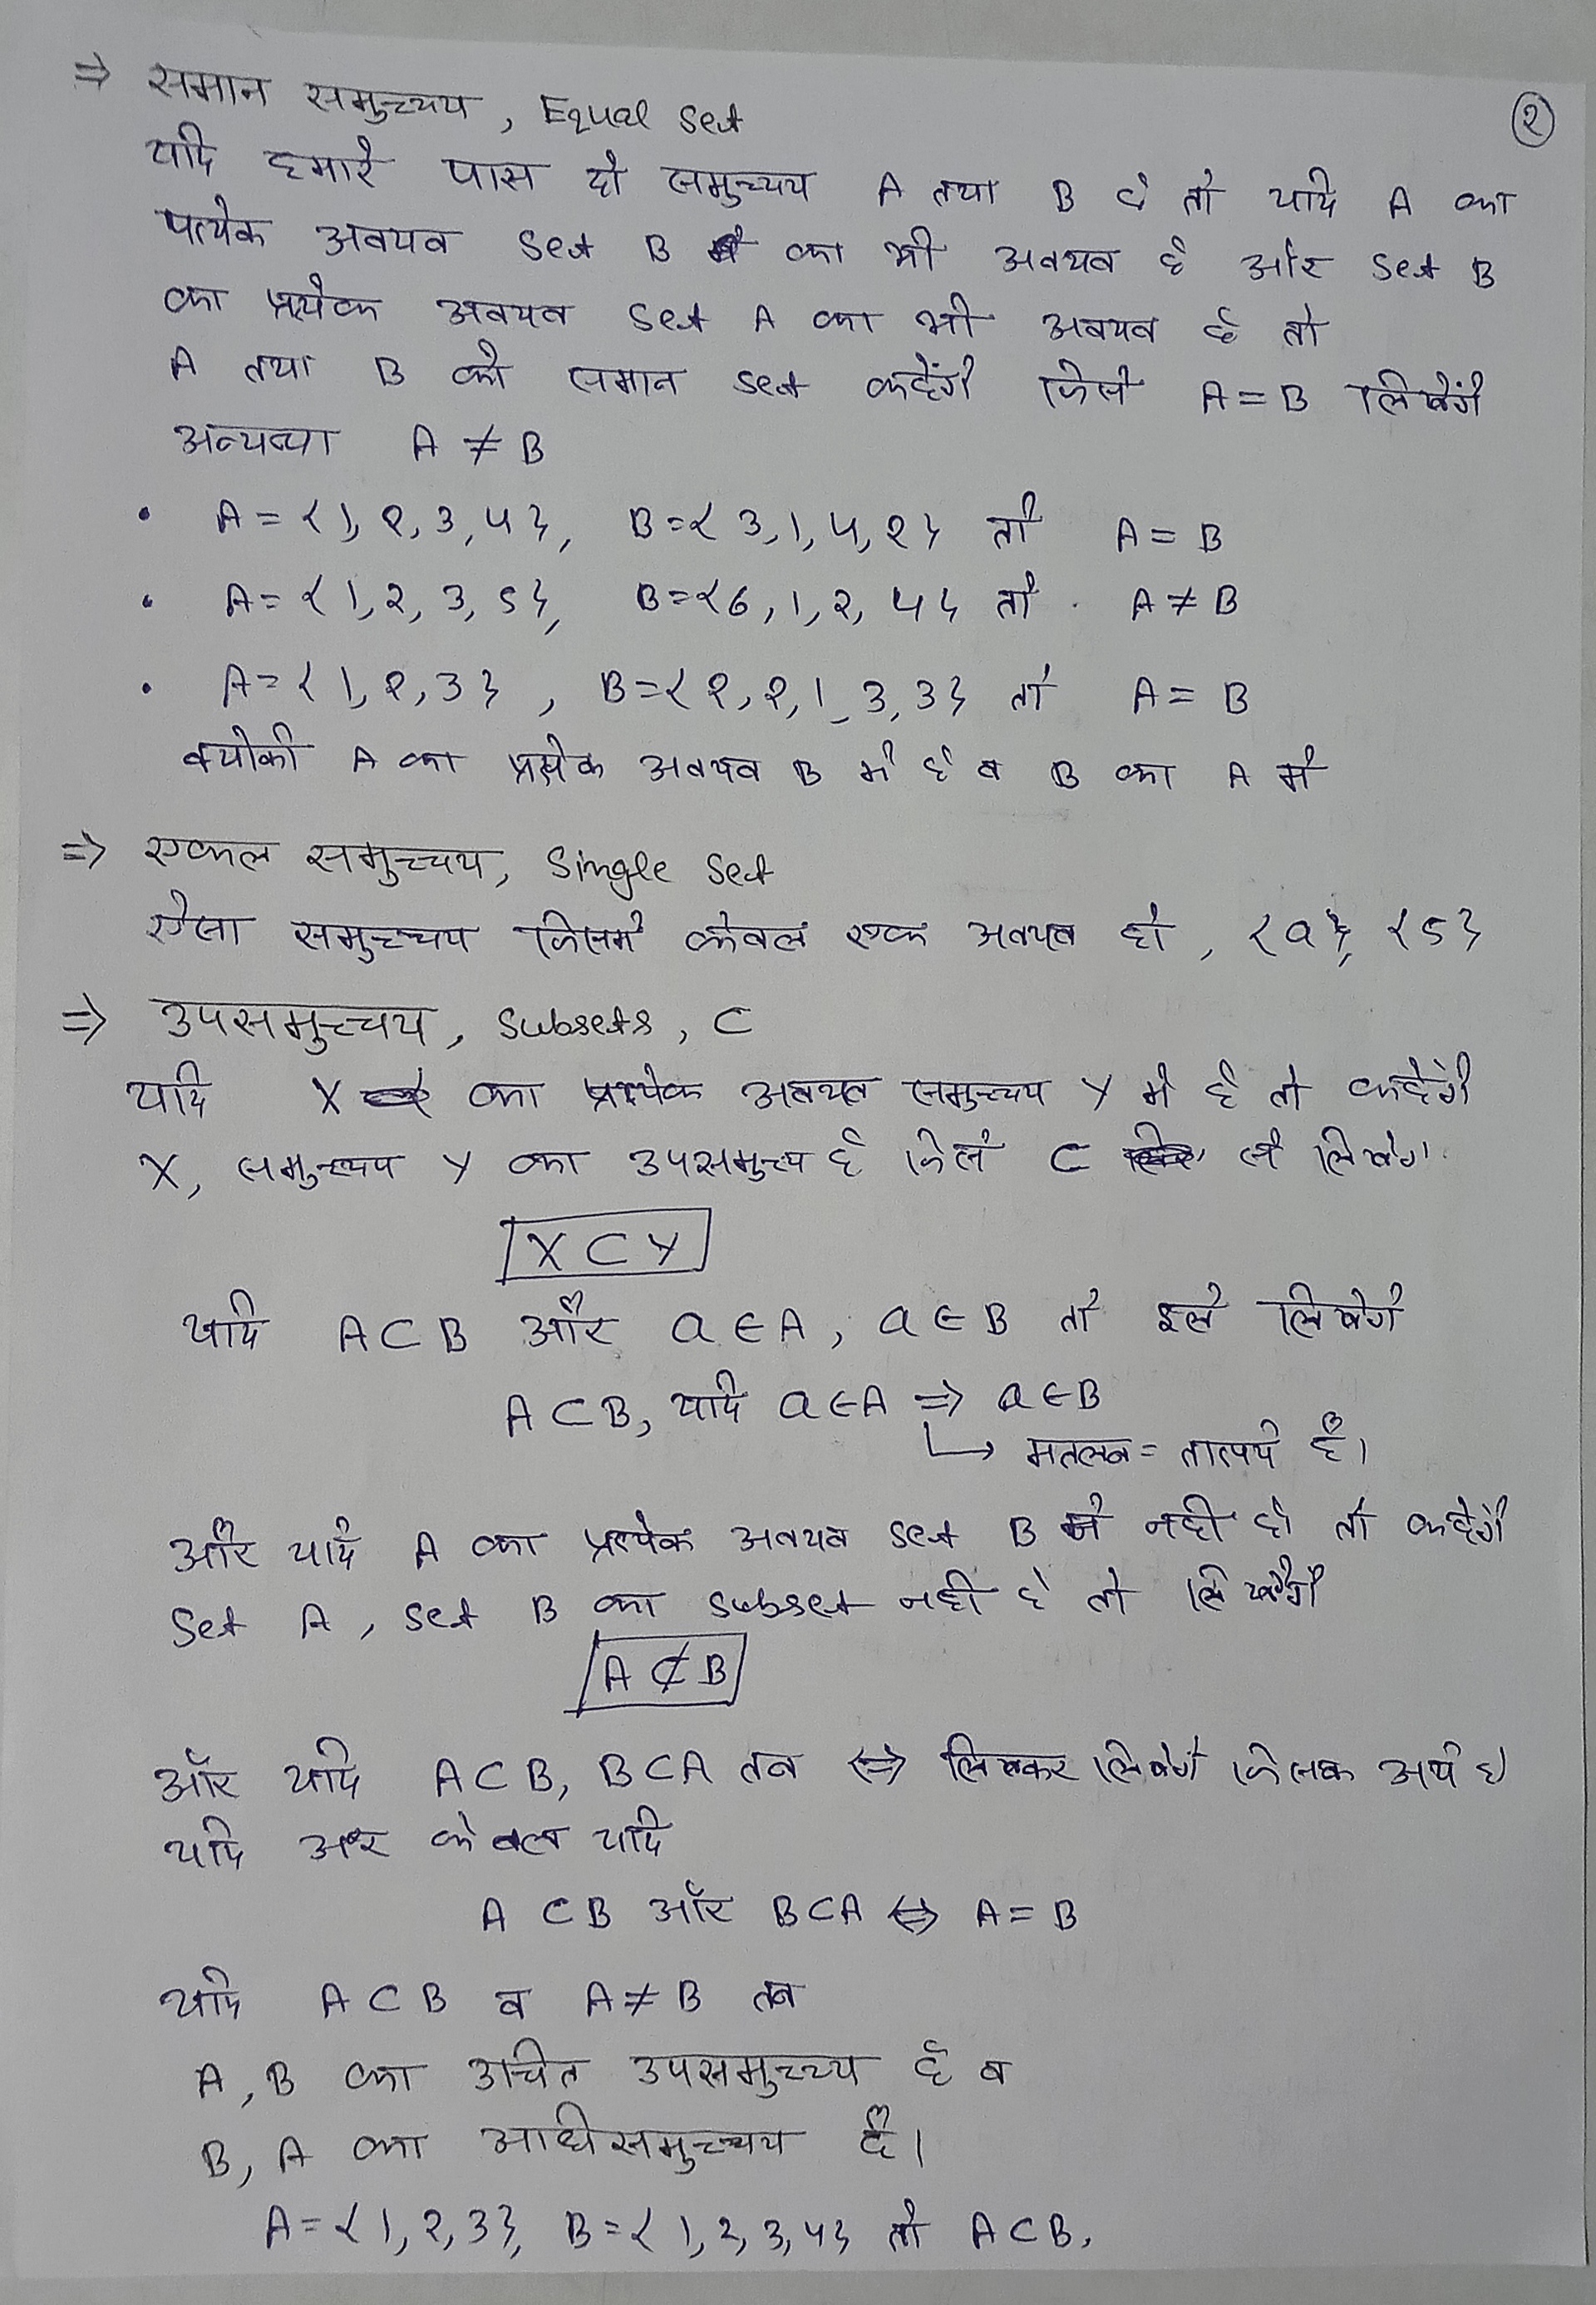 ⇒ समान समुच्चय, Equal Set
②
यदि हमारे पास दो समुच्चय A तथा B है तो यदि A का
पत्येक अवयव Set B का भी अवयव है और Set B
का प्रत्येक अवयव Set A का भी अवयव है तो
A तथा B को समान Set कहेंगे जिसे A = B लिखेंगे
अन्यथा A ≠ B
• A = {1, 2, 3, 4}, B = {3, 1, 4, 2} तो A = B
• A = {1, 2, 3, 5}, B = {6, 1, 2, 4} तो A ≠ B
• A = {1, 2, 3}, B = {2, 2, 1, 3, 3} तो A = B
क्योकी A का प्रत्येक अवयव B मे है व B का A में
⇒ एकल समुच्चय, Single Set
ऐसा समुच्चय जिसमे केवल एक अवयव हो, {a}, {5}
⇒ उपसमुच्चय, Subsets, ⊂
यदि X का प्रत्येक अवयव समुच्चय Y मे है तो कहेगे
X, समुच्चय Y का उपसमुच्य है जिसे ⊂ से लिखेगे
X ⊂ Y
यदि A ⊂ B और a ∈ A, a ∈ B तो इसे लिखेगे
A ⊂ B, यदि a ∈ A ⇒ a ∈ B
↳ मतलब = तात्पर्य है।
और यदि A का प्रत्येक अवयव Set B मे नही हो तो कहेगे
Set A, Set B का Subset नही है तो लिखेंगे
A ⊄ B
और यदि A ⊂ B, B ⊂ A तब ⇔ लिखकर लिखेगे जिसक अर्थ है
यदि और केवल यदि
A ⊂ B और B ⊂ A ⇔ A = B
यदि A ⊂ B व A ≠ B तब
A, B का उचित उपसमुच्च्य है व
B, A का आधिसमुच्चय है।
A = {1, 2, 3}, B = {1, 2, 3, 4} तो A ⊂ B,